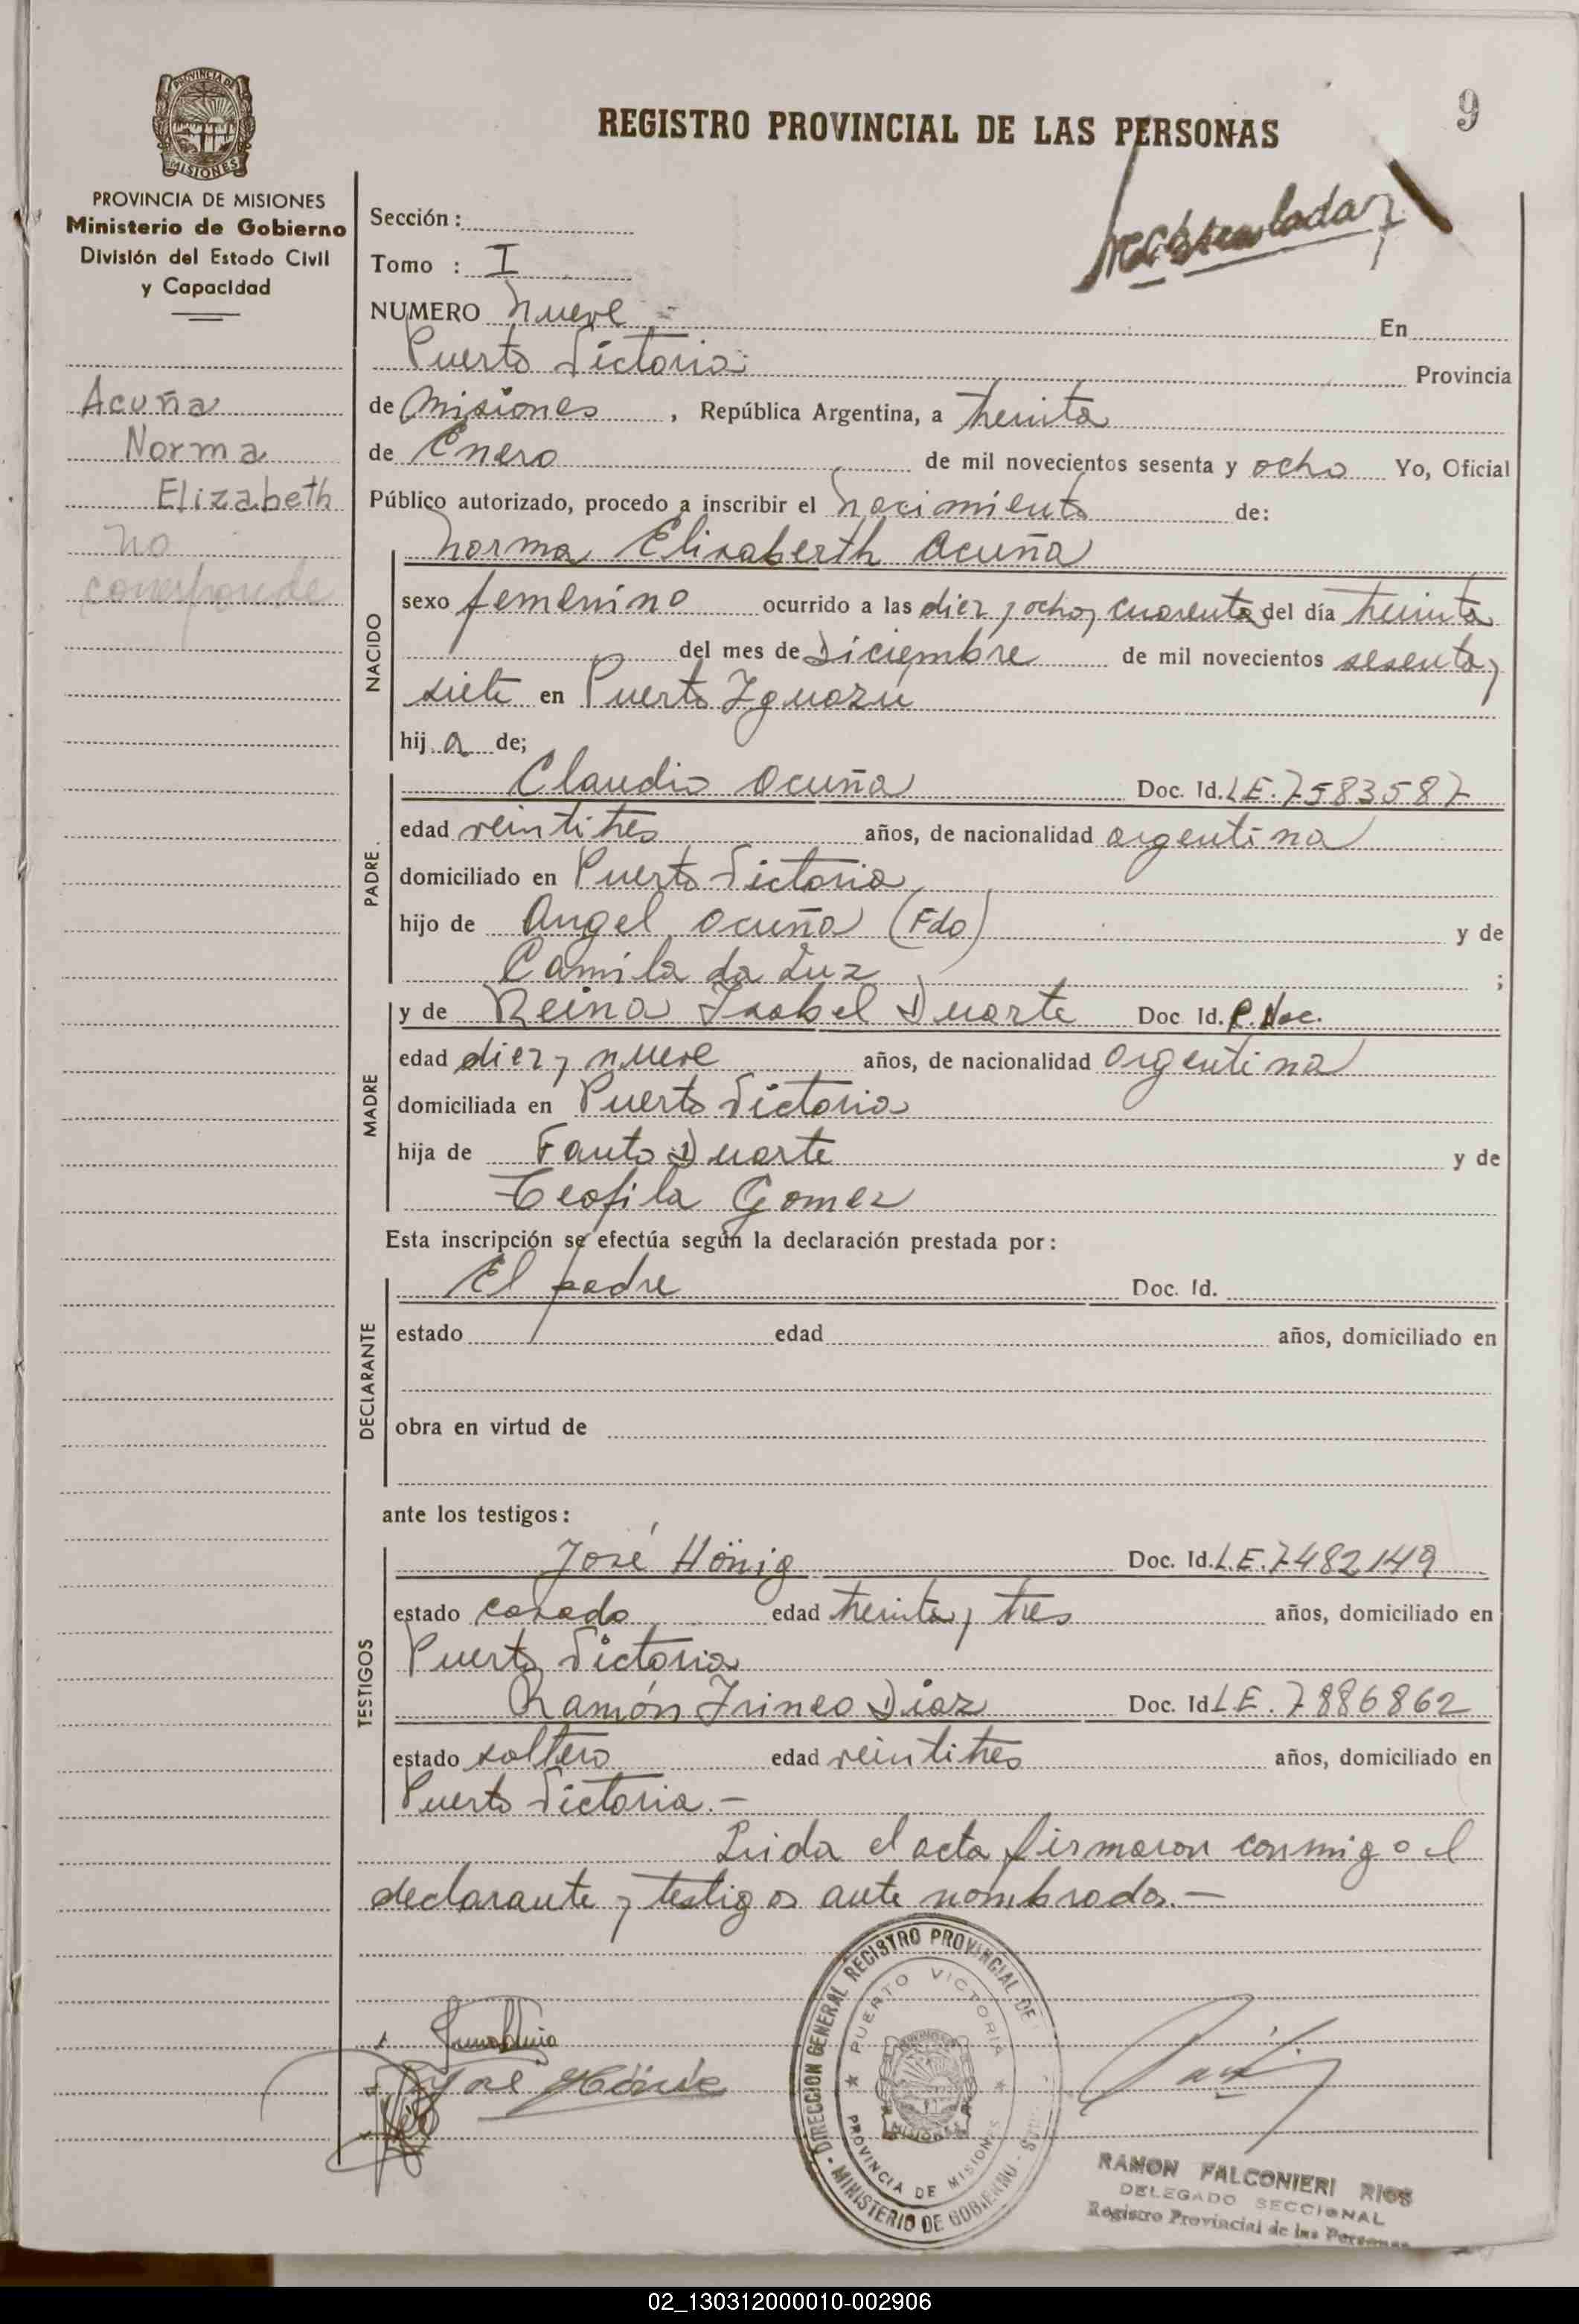 9
REGISTRO PROVINCIAL DE LAS PERSONAS
PROVINCIA DE MISIONES
MISIONES
PROVINCIA DE MISIONES
Ministerio de Gobierno
División del Estado Civil
y Capacidad
Acuña
Norma
Elizabeth
no
corresponde
Sección :
Tomo : I
NUMERO nueve En
Puerto Victoria Provincia
de Misiones , República Argentina, a treinta
de Enero de mil novecientos sesenta y ocho Yo, Oficial
Público autorizado, procedo a inscribir el nacimiento de:
NACIDO
Norma Elisaberth Acuña
sexo femenino ocurrido a las diez y ocho y cuarenta del día treinta
del mes de Diciembre de mil novecientos sesenta y
siete en Puerto Iguazú
hij a de;
PADRE
Claudio Acuña Doc. Id. L E. 7583587
edad veintitres años, de nacionalidad argentina
domiciliado en Puerto Victoria
hijo de Angel Acuña (Fdo) y de
Camila da Luz ;
MADRE
y de Reina Isabel Duarte Doc Id. P. Noc.
edad diez y nueve años, de nacionalidad argentina
domiciliada en Puerto Victoria
hija de Fauto Duarte y de
Teofila Gomez
Esta inscripción se efectúa según la declaración prestada por :
DECLARANTE
El padre Doc. Id.
estado edad años, domiciliado en
obra en virtud de
ante los testigos :
TESTIGOS
José Hönig Doc. Id. L.E. 7482149
estado casado edad treinta y tres años, domiciliado en
Puerto Victoria
Ramón Irineo Diaz Doc. Id L.E. 7886862
estado soltero edad veintitres años, domiciliado en
Puerto Victoria.-
Leida el acta firmaron conmigo el
declarante y testigos ante nombrados.-
José Hönig
DIRECCION GENERAL REGISTRO PROVINCIAL DE
MINISTERIO DE GOBIERNO
PUERTO VICTORIA
PROVINCIA DE MISIONES
MISIONES
RAMON FALCONIERI RIOS
DELEGADO SECCIONAL
Registro Provincial de las Personas
02_130312000010-002906